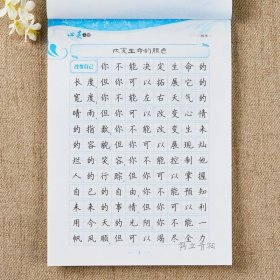 改变生命的颜色
改变自己 你不能决定生命的
长度但你可以拓展它的
宽度你不能左右天气的
晴雨但你可以改变心情
的指数你不能改变生来
的容貌但你可以展现灿
烂的笑容你不能控制他
人的行踪但你可以掌握
自己的自由你不能预知
未来的事情但你可以利
用今天的光阴你不能一
帆风顺但可以竭尽全力